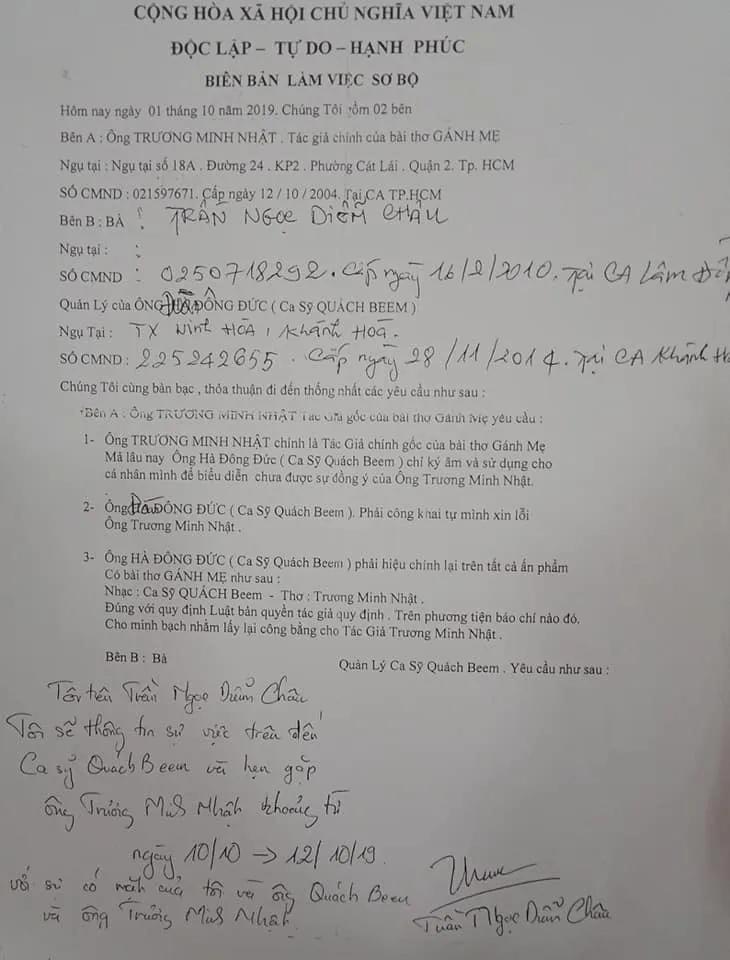 CỘNG HÒA XÃ HỘI CHỦ NGHĨA VIỆT NAM
ĐỘC LẬP – TỰ DO – HẠNH PHÚC
BIÊN BẢN LÀM VIỆC SƠ BỘ
Hôm nay ngày 01 tháng 10 năm 2019. Chúng Tôi gồm 02 bên
Bên A : Ông TRƯƠNG MINH NHẬT . Tác giả chính của bài thơ GÁNH MẸ
Ngụ tại : Ngụ tại số 18A . Đường 24 . KP2 . Phường Cát Lái . Quận 2. Tp. HCM
SỐ CMND : 021597671. Cấp ngày 12 / 10 / 2004. Tại CA TP.HCM
Bên B : BÀ : TRẦN NGỌC DIỄM CHÂU
Ngụ tại :
SỐ CMND : 0250718292. Cấp ngày 16/2/2010. Tại CA Lâm
Quản Lý của ÔNG ĐÔNG ĐỨC ( Ca Sỹ QUÁCH BEEM )
Ngụ Tại : TX Ninh HÒA, Khánh Hoà.
SỐ CMND : 225242655 . Cấp ngày 28/11/2014. Tại CA Khánh
Chúng Tôi cùng bàn bạc , thỏa thuận đi đến thống nhất các yêu cầu như sau :
*Bên A : Ông TRƯƠNG MINH NHẬT Tác Giả gốc của bài thơ Gánh Mẹ yêu cầu :
1- Ông TRƯƠNG MINH NHẬT chính là Tác Giả chính gốc của bài thơ Gánh Mẹ
Mà lâu nay Ông Hà Đông Đức ( Ca Sỹ Quách Beem ) chỉ ký âm và sử dụng cho
cá nhân mình để biểu diễn chưa được sự đồng ý của Ông Trương Minh Nhật.
2- Ông ĐÔNG ĐỨC ( Ca Sỹ Quách Beem ). Phải công khai tự mình xin lỗi
Ông Trương Minh Nhật .
3- Ông HÀ ĐÔNG ĐỨC ( Ca Sỹ Quách Beem ) phải hiệu chính lại trên tất cả ấn phẩm
Có bài thơ GÁNH MẸ như sau :
Nhạc : Ca Sỹ QUÁCH Beem - Thơ : Trương Minh Nhật .
Đúng với quy định Luật bản quyền tác giả quy định . Trên phương tiện báo chí nào đó.
Cho minh bạch nhằm lấy lại công bằng cho Tác Giả Trương Minh Nhật .
Bên B : Bà Quản Lý Ca Sỹ Quách Beem . Yêu cầu như sau :
Tôi tên Trần Ngọc Diễm Châu
Tôi sẽ thông tin sự việc trên đến
Ca sỹ Quách Beem và hẹn gặp
ông Trương Minh Nhật khoảng từ
ngày 10/10 → 12/10/19.
với sự có mặt của tôi và ông Quách Beem
và ông Trương Minh Nhật.
Trần Ngọc Diễm Châu